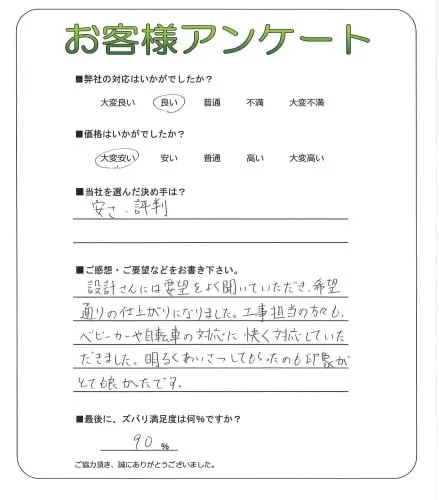 お客様アンケート
■弊社の対応はいかがでしたか？
大変良い 良い 普通 不満 大変不満
■価格はいかがでしたか？
大変安い 安い 普通 高い 大変高い
■当社を選んだ決め手は？
安さ、評判
■ご感想・ご要望などをお書き下さい。
設計さんには要望をよく聞いていただき、希望
通りの仕上がりになりました。工事担当の方々も、
ベビーカーや自転車の対応に快く対応していた
だきました。明るくあいさつしてもらったのも印象が
とても良かったです。
■最後に、ズバリ満足度は何％ですか？
90 %
ご協力頂き、誠にありがとうございました。